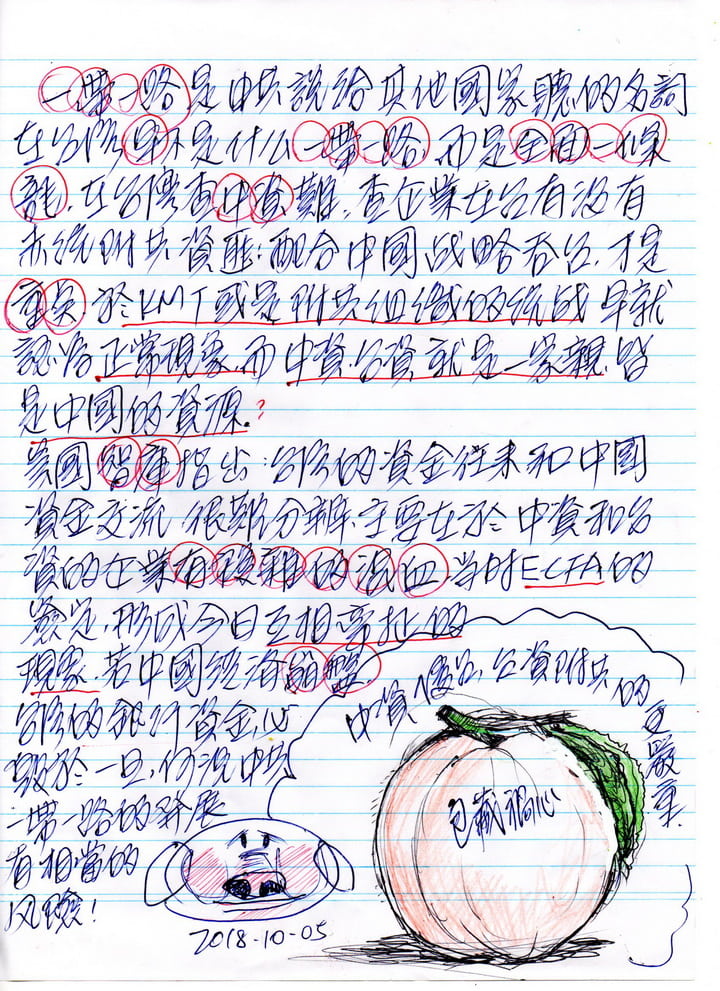 一帶一路是中共說給其他國家聽的名詞
在台灣早不是什么一帶一路,而是全面一條
龍,在台灣查中資難,查企業在台有沒有
赤統附共資匪;配合中國战略吞台,才是
重点,於KMT或是附共組織的統战早就
認為正常現象,而中資台資就是一家親,皆
是中國的資源?
美國智庫指出:台灣的資金往來和中國
資金交流很難分辨,主要在於中資和台
資的企業有複雜的混血,当時ECFA的
簽定,形成今日互相牽扯的
現象,若中國經濟崩盤,
台灣的銀行資金,必
毀於一旦,何況中共
一帶一路的發展
有相當的
风險!
中資侵台,台資附共的更嚴重.
包藏禍心
2018-10-05